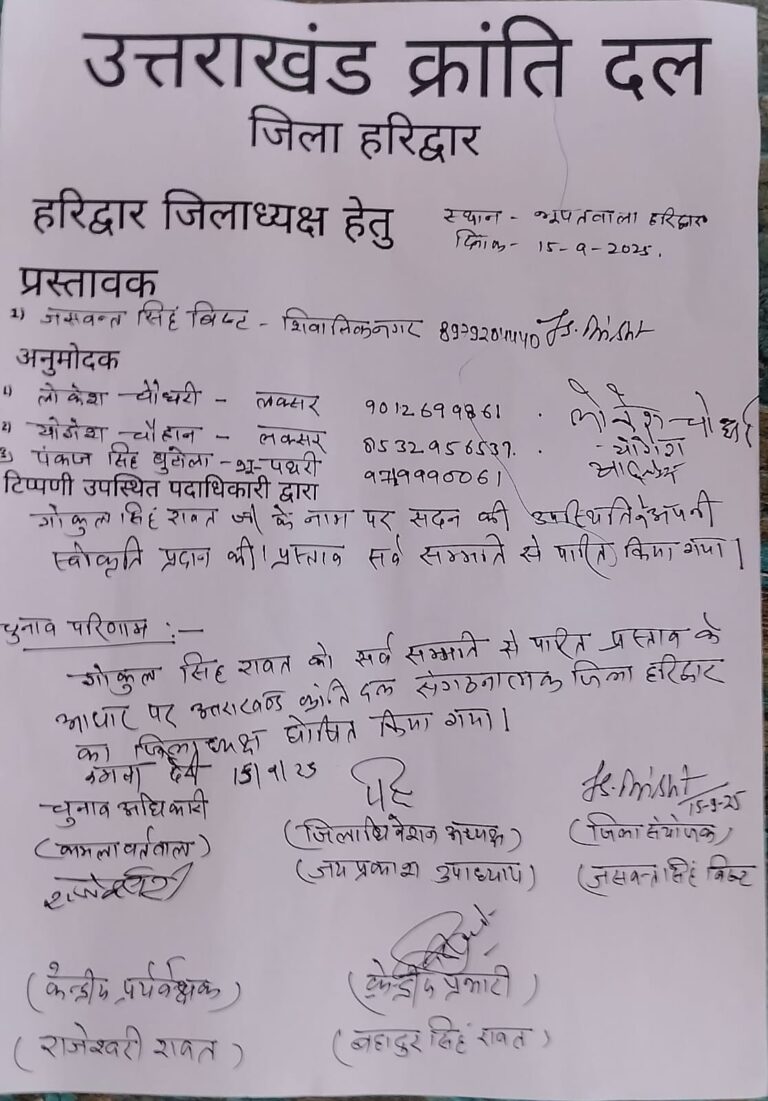 उत्तराखंड क्रांति दल
जिला हरिद्वार
हरिद्वार जिलाध्यक्ष हेतु
स्थान - भूपतवाला हरिद्वार
दिनांक - 15-9-2025.
प्रस्तावक
1) जसवन्त सिंह बिष्ट - शिवालिकनगर 8979204440 J.S. Bisht
अनुमोदक
1) लोकेश चौधरी - लक्सर 9012699861 . लोकेश चौधरी
2) योगेश चौहान - लक्सर 8532956537. योगेश
3) पंकज सिंह बुटोला - पथरी
टिप्पणी उपस्थित पदाधिकारी द्वारा
गोकुल सिंह रावत जी के नाम पर सदन की उपस्थिति ने अपनी
स्वीकृति प्रदान की। प्रस्ताव सर्व सम्मति से पारित किया गया।
चुनाव परिणाम :-
गोकुल सिंह रावत को सर्व सम्मति से पारित प्रस्ताव के
आधार पर उत्तराखण्ड क्रांति दल संगठनात्मक जिला हरिद्वार
का जिलाध्यक्ष घोषित किया गया।
15/9/25
J.S. Bisht
15-9-25
चुनाव अधिकारी
(जिलाधिवेशन अध्यक्ष)
(जिला संयोजक)
(जय प्रकाश उपाध्याय)
(जसवन्त सिंह बिष्ट
राजेश्वरी
(केन्द्रीय पर्यवेक्षक)
(केन्द्रीय प्रभारी)
(राजेश्वरी रावत)
(बहादुर सिंह रावत)